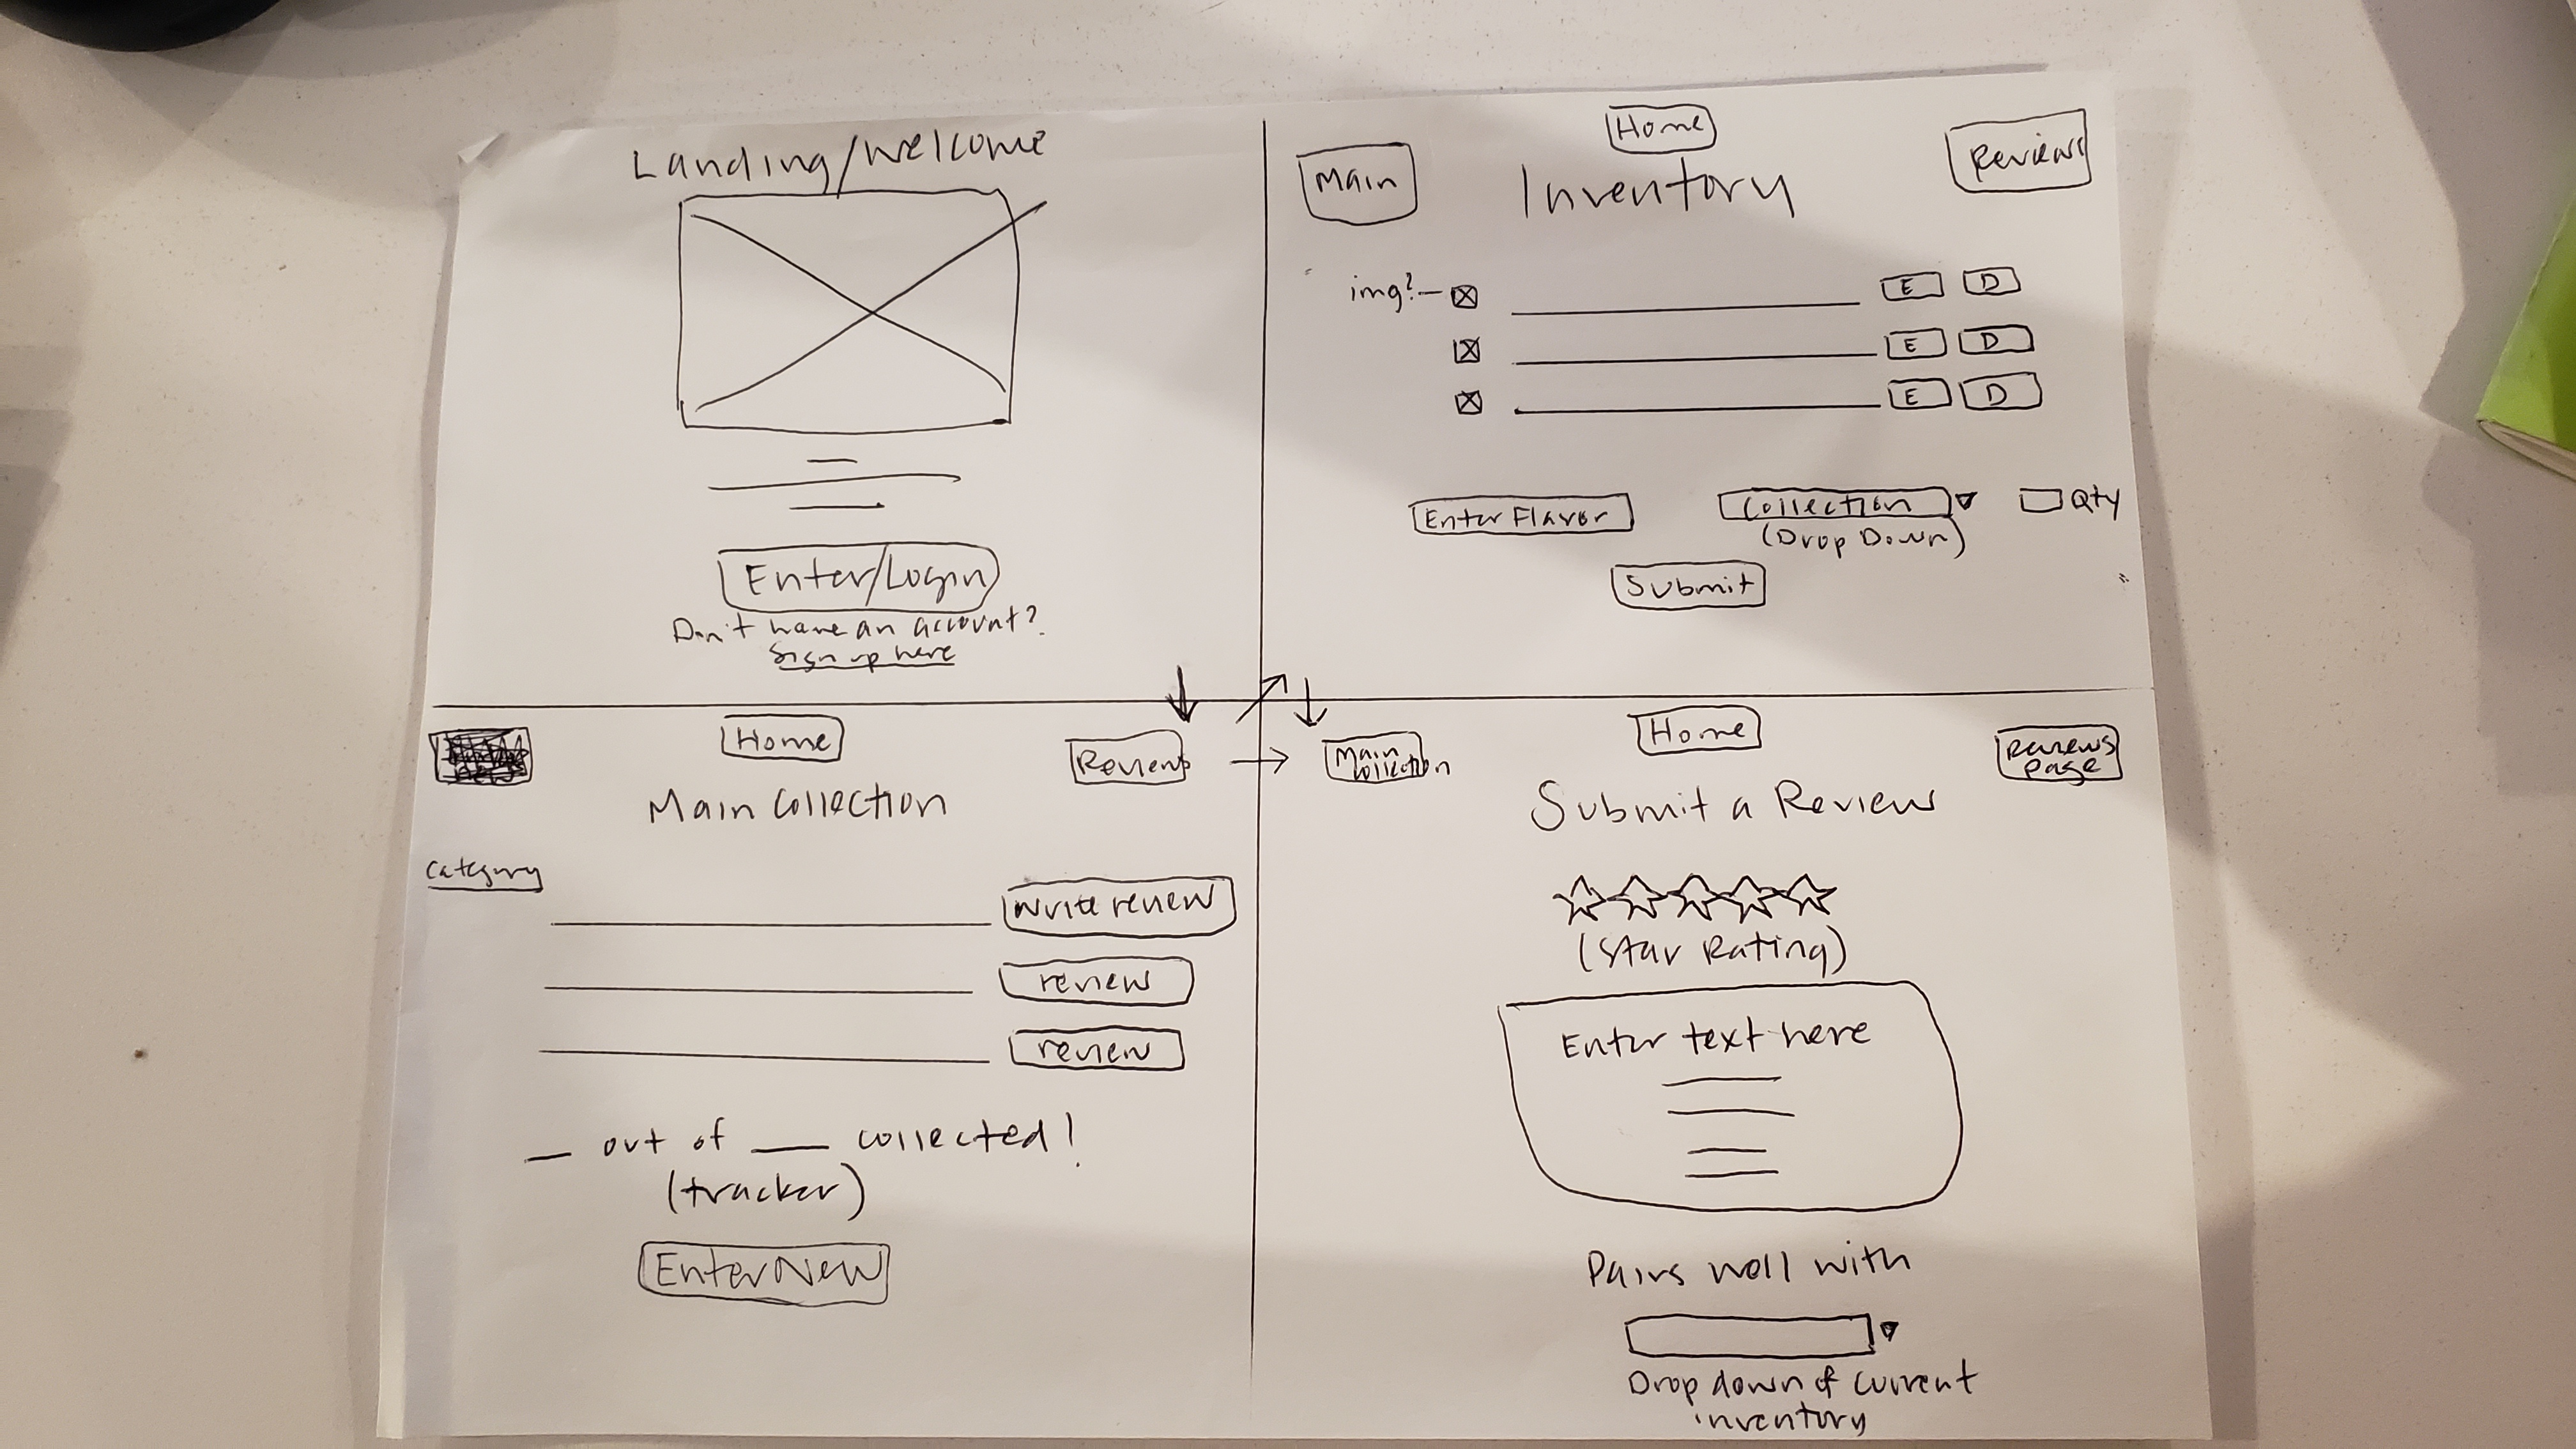 Landing/Welcome
Enter/Login
Don't have an account?
Sign up here
Home
Main
Reviews
Inventory
img?
E D
E D
E D
Enter Flavor
Collection
Qty
(Drop Down)
Submit
Home
Reviews
Main Collection
Category
Write review
review
review
_ out of __ collected!
(tracker)
Enter New
Home
Main
Collection
Reviews
Page
Submit a Review
(Star Rating)
Enter text here
Pairs well with
Drop down of current
inventory